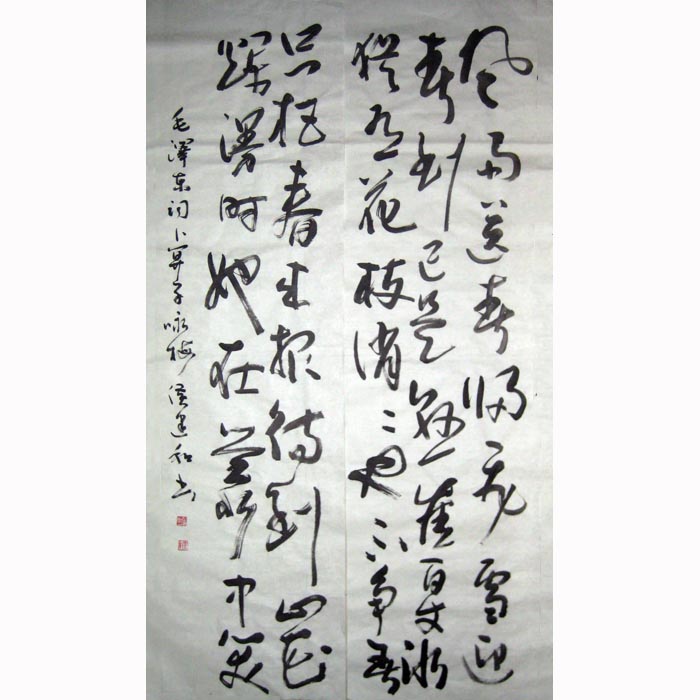 风雨送春归飞雪迎
春到已是悬崖百丈冰
犹有花枝俏〻也不争春
只把春来报待到山花
爛漫时她在叢中笑
毛澤东词卜算子咏梅 建和书